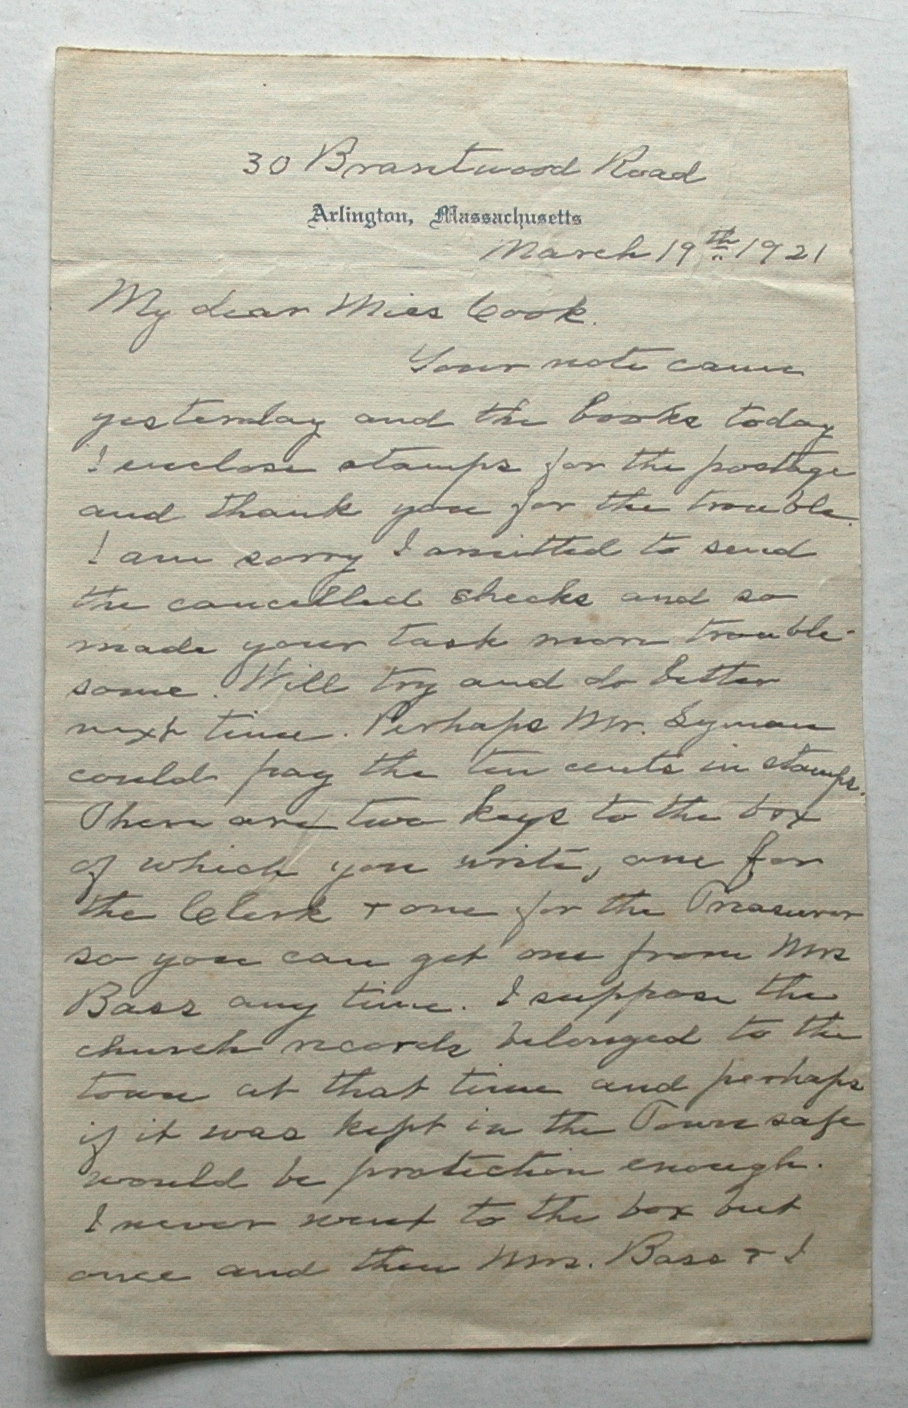 30 Brantwood Road
Arlington, Massachusetts
March 19th 1921
My dear Miss Cook.
Your note came
yesterday and the books today
I enclose stamps for the postage
and thank you for the trouble.
I am sorry I omitted to send
the cancelled checks and so
made your task more trouble-
some. Will try and do better
next time. Perhaps Mr. Lyman
could pay the ten cents in stamps.
There are two keys to the box
of which you write, one for
the Clerk + one for the Treasurer
so you can get one from Mrs
Bass any time. I suppose the
church records belonged to the
town at that time and perhaps
if it was kept in the Town safe
would be protection enough.
I never went to the box but
once and then Mrs. Bass + I